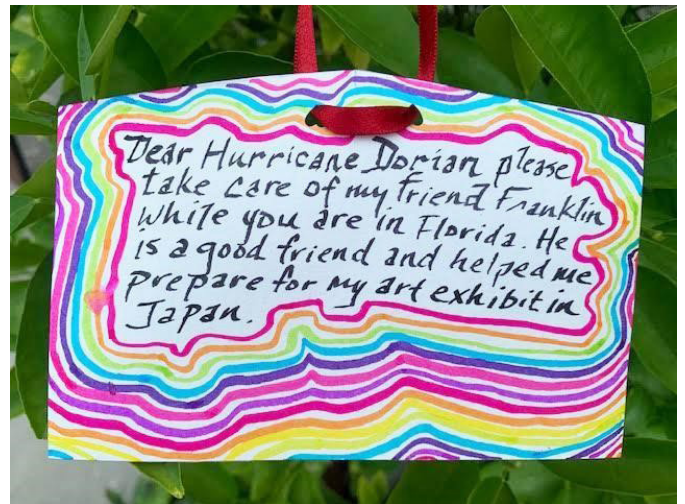 Dear Hurricane Dorian please
take care of my friend Franklin
while you are in Florida. He
is a good friend and helped me
prepare for my art exhibit in
Japan.